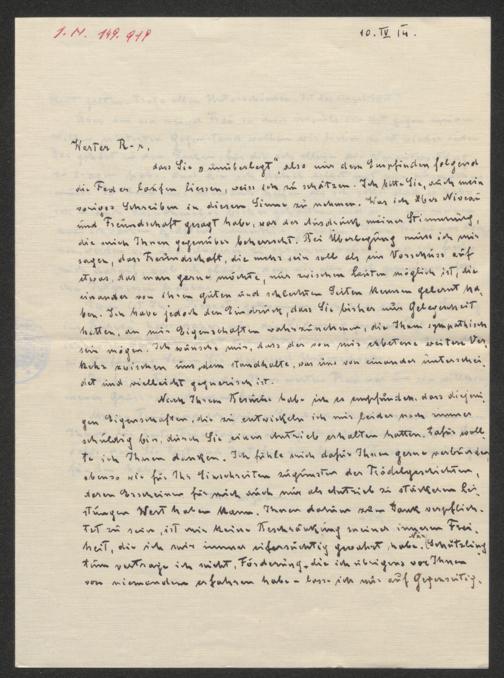 J.N. 149.918
10. IV 14.
Werter R-r,
dass Sie „unüberlegt", also nur dem Empfinden folgend
die Feder laufen liessen, weiss ich zu schätzen. Ich bitte Sie, auch mein
voriges Schreiben in diesem Sinne zu nehmen. Was ich über Niveau
und Freundschaft gesagt habe, war der Ausdruck meiner Stimmung,
die mich Ihnen gegenüber beherrscht. Bei Überlegung muss ich mir
sagen, dass Freundschaft, die mehr sein soll als ein Vorschuss auf
etwas, das man gerne möchte, nur zwischen Leuten möglich ist, die
einander von ihren guten und schlechten Seiten kennen gelernt ha-
ben. Ich habe jedoch den Eindruck, dass Sie bisher nur Gelegenheit
hatten, an mir Eigenschaften wahrzunehmen, die Ihnen sympathisch
sein mögen. Ich wünsche mir, dass der von mir erbetene weitere Ver-
kehr zwischen uns dem standhalte, was uns von einander unterschei-
det und vielleicht gegnerisch ist.
Nach Ihrem Besuche habe ich es empfunden, dass diejeni-
gen Eigenschaften, die zu entwickeln ich mir leider noch immer
schuldig bin, durch Sie einen Antrieb erhalten hatten. Dafür woll-
te ich Ihnen danken. Ich fühle mich dafür Ihnen gerne verbunden
ebenso wie für Ihr Einschreiten zugunsten der Rödelgeschichten,
deren Erscheinen für mich auch nur als Antrieb zu stärkeren Lei-
stungen Wert haben kann. Ihnen darum zum Dank verpflich-
tet zu sein, ist mir keine Beschränkung meiner inneren Frei-
heit, die ich mir immer eifersüchtig gewahrt habe. Nur Schützling-
tum vertrage ich nicht, Förderung – die ich übrigens vor Ihnen
von niemandem erfahren habe – lasse ich mir auf Gegenseitig-